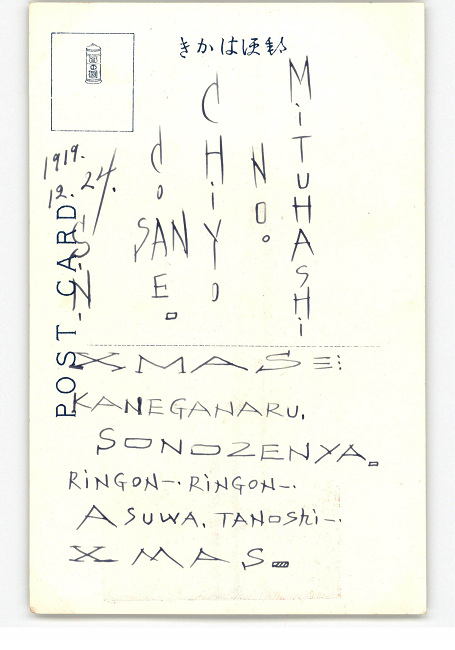 郵便はかき
MiTUHASHi
NO.
CHiYO
do SAN E.
1919.
12. 24.
POST CARD
XMAS
KANEGANARU,
SONOZENYA.
RiNGON—. RiNGON—.
ASUWA, TANOShi—.
XMAS.